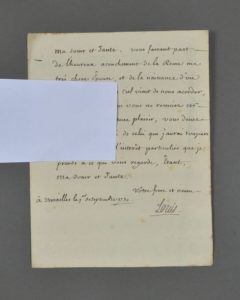 Ma sœur et Tante, vous faisant part
de l'heureux accouchement de la Reine ma
très chère Epouse, et de la naissance d'une
ciel vient de nous accorder,
vous ne
plaisir, vous devez
de celui que j'aurai toujours
l'intérêt particulier que je
prends à ce qui vous regarde, Etant,
Ma sœur et Tante
Votre frere et neveu
à Versailles le
Louis